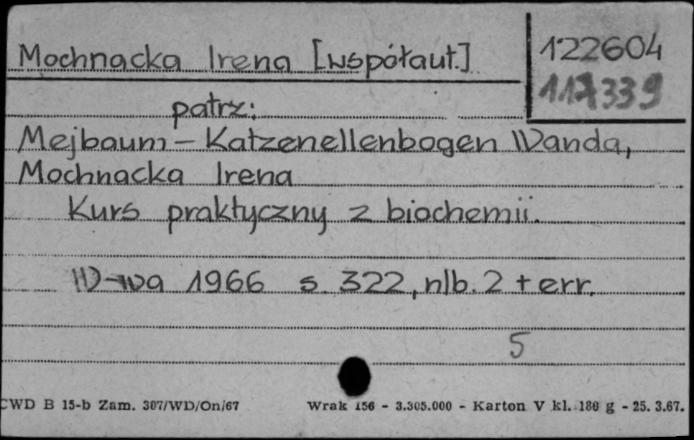 Mochnacka Irena [współaut.]
122604
117339
patrz:
Mejbaum-Katzenellenbogen Wanda,
Mochnacka Irena
Kurs praktyczny z biochemii.
W-wa 1966 s. 322, nlb. 2 + err.
5
CWD B 15-b Zam. 307/WD/On/67 Wrak 156 - 3.305.000 - Karton V kl. 180 g - 25. 3.67.